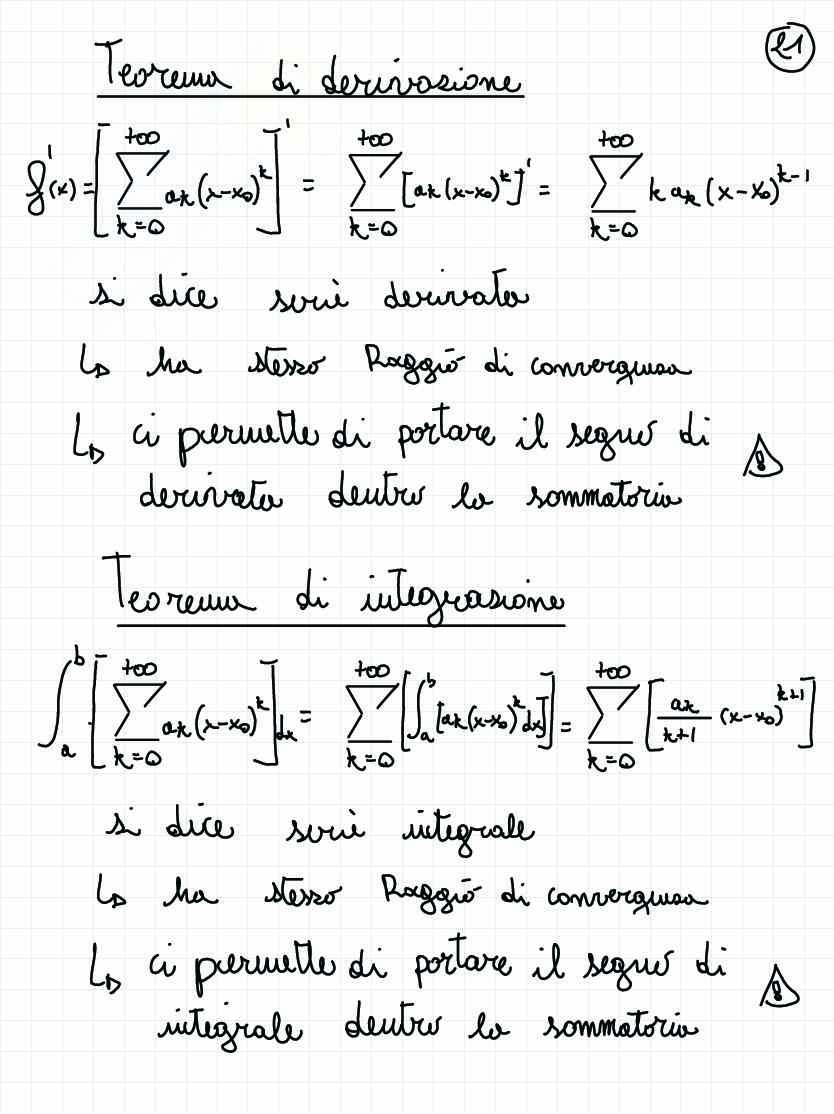 21
Teorema di derivazione
f'(x) = [ +∞ ∑ k=0 ak (x-x0)^k ]' = +∞ ∑ k=0 [ak (x-x0)^k]' = +∞ ∑ k=0 k ak (x-x0)^k-1
si dice serie derivata
↳ ha stesso Raggio di convergenza
↳ ci permette di portare il segno di
derivata dentro la sommatoria
Teorema di integrazione
∫ b a [ +∞ ∑ k=0 ak (x-x0)^k ] dx = +∞ ∑ k=0 [ ∫ b a [ak (x-x0)^k dx] ] = +∞ ∑ k=0 [ ak / k+1 (x-x0)^k+1 ]
si dice serie integrale
↳ ha stesso Raggio di convergenza
↳ ci permette di portare il segno di
integrale dentro la sommatoria